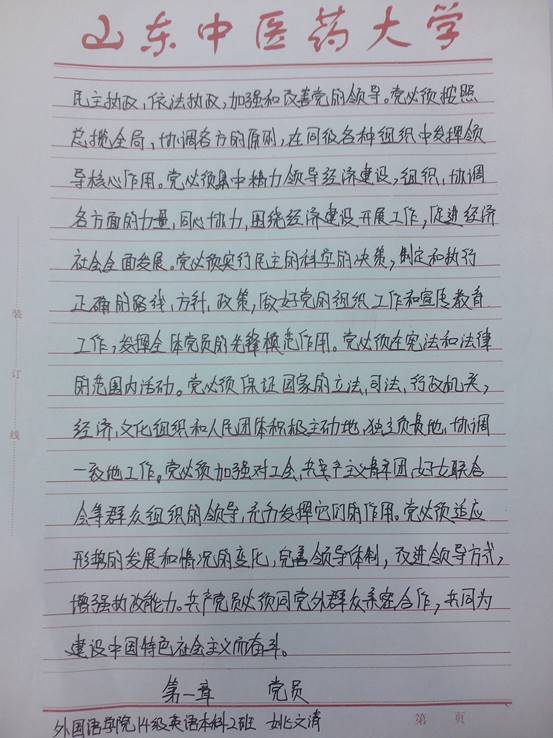 山东中医药大学
民主执政，依法执政，加强和改善党的领导。党必须按照
总揽全局，协调各方的原则，在同级各种组织中发挥领
导核心作用。党必须集中精力领导经济建设，组织，协调
各方面的力量，同心协力，围绕经济建设开展工作，促进经济
社会全面发展。党必须实行民主的科学的决策，制定和执行
正确的路线，方针，政策，做好党的组织工作和宣传教育
工作，发挥全体党员的先锋模范作用。党必须在宪法和法律
的范围内活动。党必须保证国家的立法，司法，行政机关，
经济，文化组织和人民团体积极主动地，独立负责地，协调
一致地工作。党必须加强对工会，共产主义青年团，妇女联合
会等群众组织的领导，充分发挥它们的作用。党必须适应
形势的发展和情况的变化，完善领导体制，改进领导方式，
增强执政能力。共产党员必须同党外群众亲密合作，共同为
建设中国特色社会主义而奋斗。
第一章 党员
外国语学院14级英语本科2班 姚文清
第 页
装
订
线